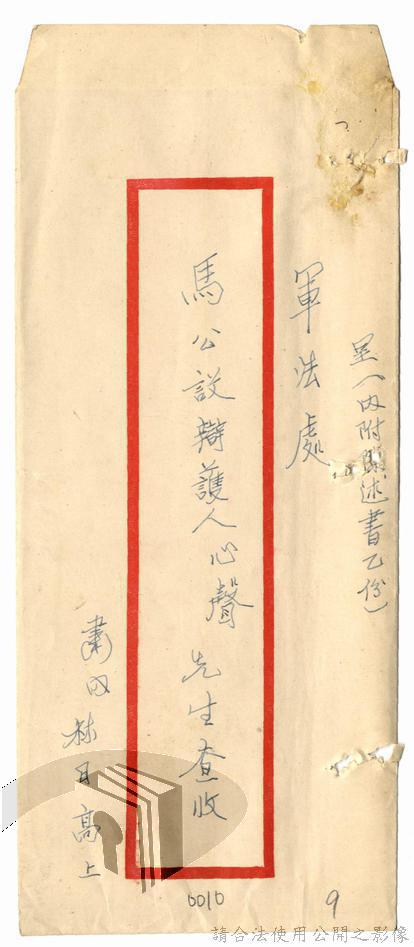 呈（內附陳述書乙份）
軍法處
馬公設辯護人心聲 先生查收
林日高上
0010
9
請合法使用公開之影像